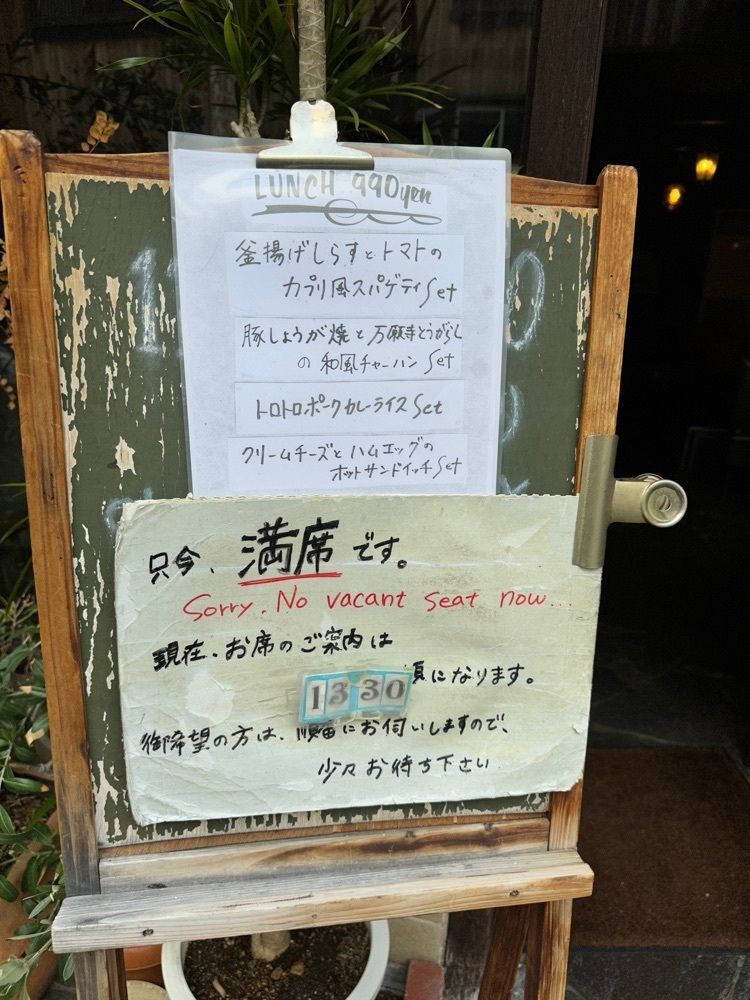 LUNCH 990yen
釜揚げしらすとトマトの
カプリ風スパゲティ Set
豚しょうが焼と万願寺とうがらし
の 和風チャーハン Set
トロトロポークカレーライス Set
クリームチーズとハムエッグの
ホットサンドイッチ Set
只今、満席です。
Sorry. No vacant seat now...
現在、お席のご案内は
13 30 頃になります。
御希望の方は、順番にお伺いしますので、
少々お待ち下さい